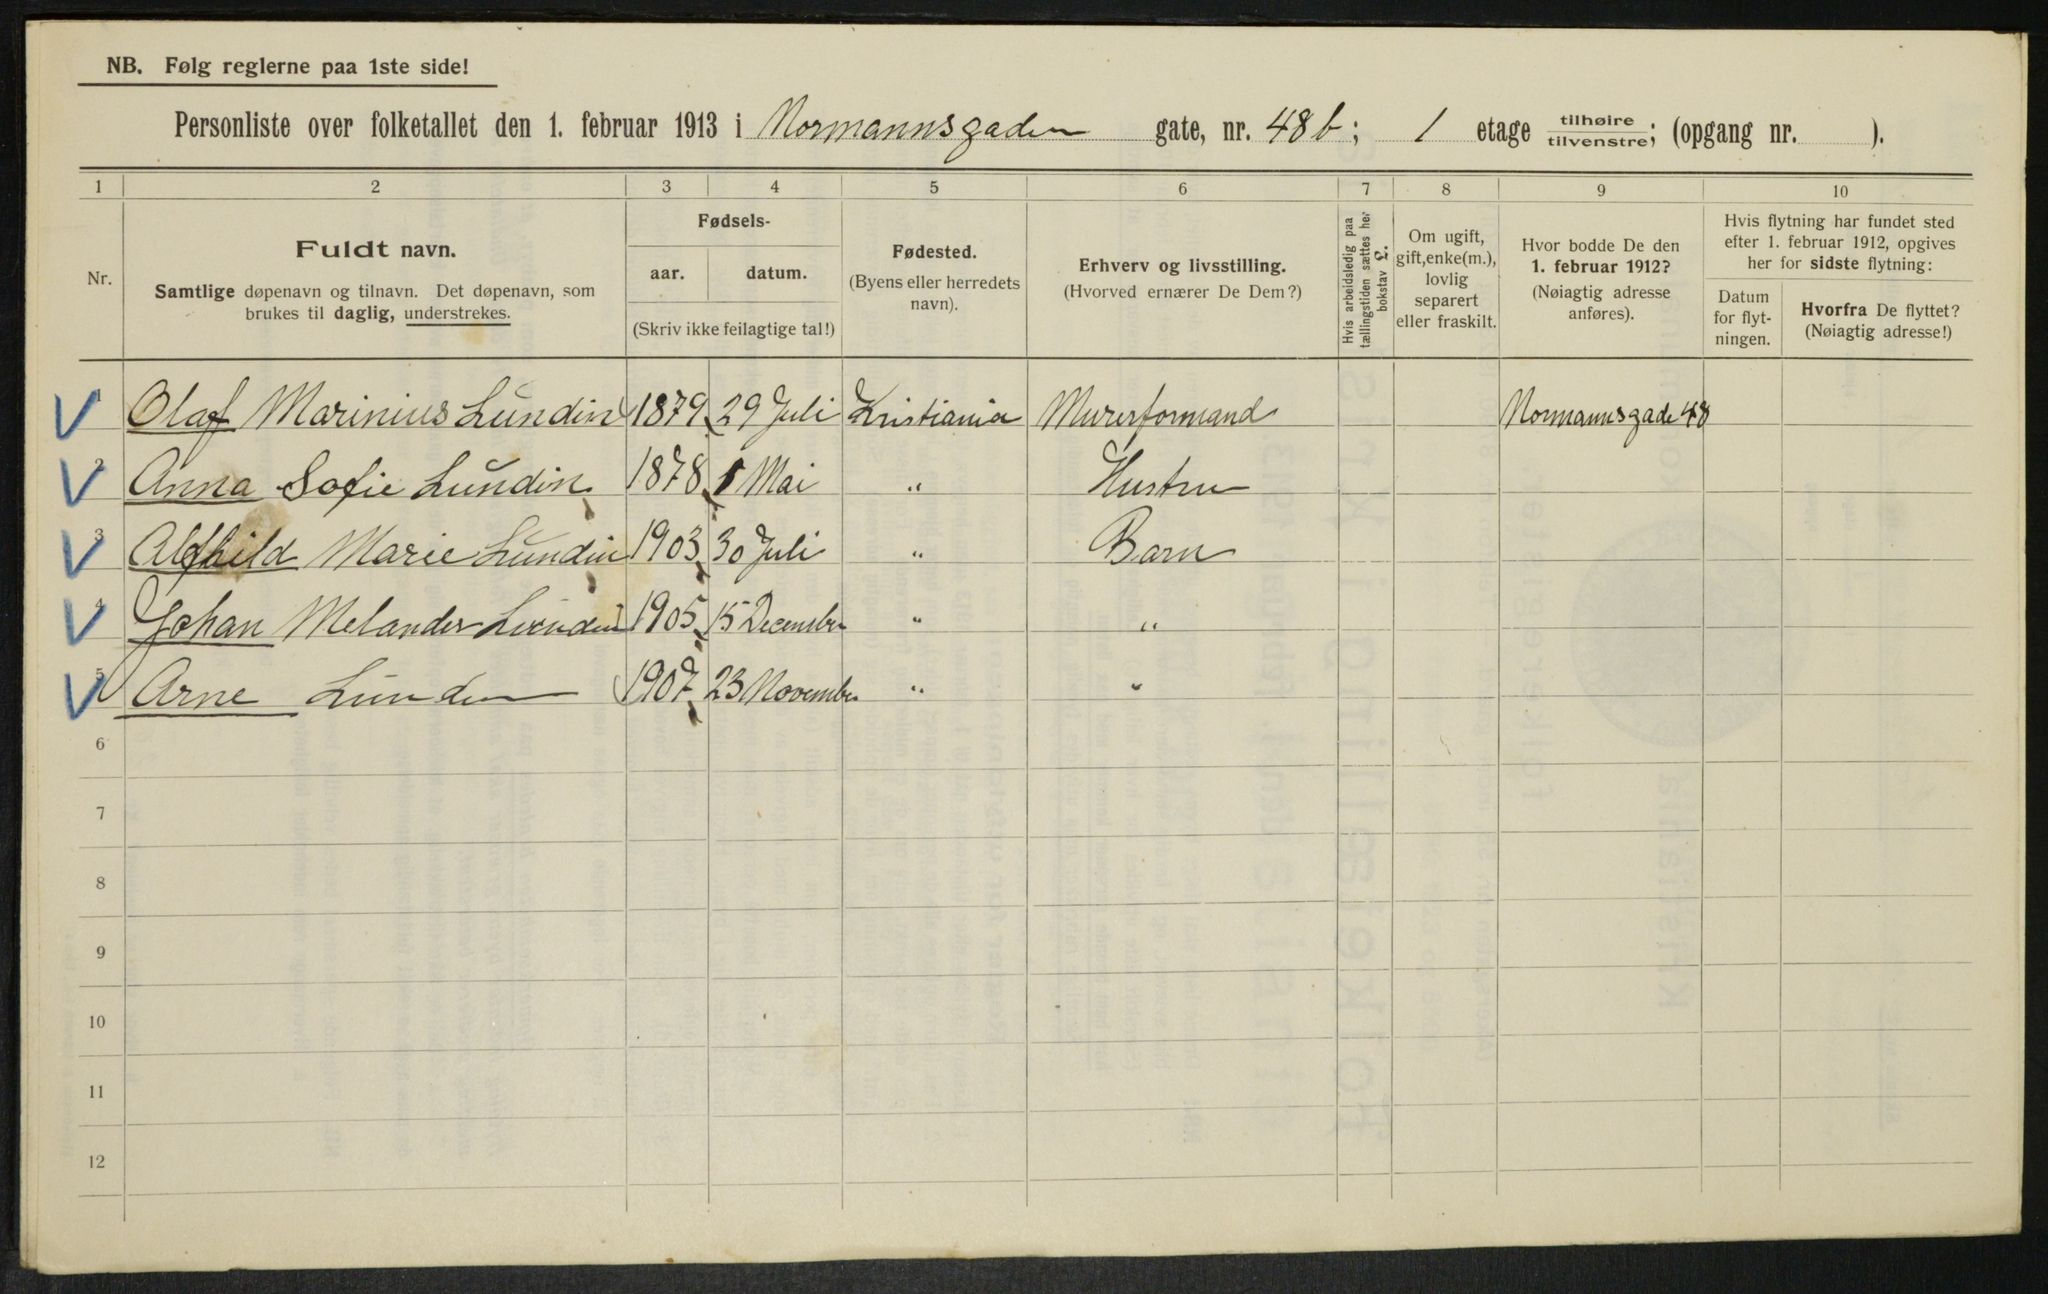 NB. Følg reglerne paa 1ste side!
Personliste over folketallet den 1. februar 1913 i Normannsgaden gate, nr. 48 b; 1 etage tilhøire/tilvenstre; (opgang nr. ).
1 2 3 4 5 6 7 8 9 10
Nr.
Fuldt navn.
Samtlige døpenavn og tilnavn. Det døpenavn, som
brukes til daglig, understrekes.
Fødsels-
aar.
datum.
(Skriv ikke feilagtige tal!)
Fødested.
(Byens eller herredets
navn).
Erhverv og livsstilling.
(Hvorved ernærer De Dem?)
Hvis arbeidsledig paa
tællingstiden sættes her
bokstav £.
Om ugift,
gift, enke(m.),
lovlig
separert
eller fraskilt.
Hvor bodde De den
1. februar 1912?
(Nøiagtig adresse
anføres).
Hvis flytning har fundet sted
efter 1. februar 1912, opgives
her for sidste flytning:
Datum
for flyt-
ningen.
Hvorfra De flyttet?
(Nøiagtig adresse!)
1 Olaf Marinius Lundin 1879 29 Juli Kristiania Murerformand Normannsgade 48
2 Anna Sofie Lundin 1878 1 Mai " Hustru
3 Alfhild Marie Lundin 1903 30 Juli " Barn
4 Johan Melander Lundin 1905 15 December " "
5 Arne Lunden 1907 23 November " "
6
7
8
9
10
11
12